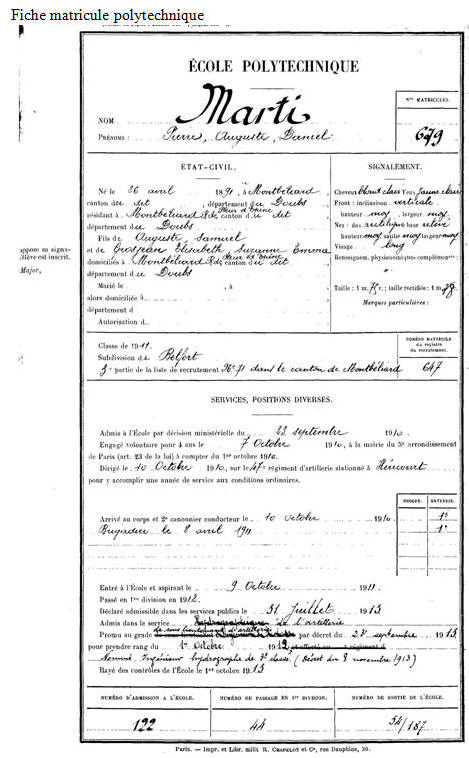 Fiche matricule polytechnique
ÉCOLE POLYTECHNIQUE
Nos MATRICULES.
NOM Marti
679
PRÉNOMS : Pierre, Auguste, Daniel
ÉTAT-CIVIL.
SIGNALEMENT.
Né le 26 avril 1891, à Montbéliard
canton du dit, département du Doubs
résidant à Montbéliard canton du dit
département du Doubs
Fils de Auguste, Samuel
et de Grosjean Elisabeth Suzanne Emma
domiciliés à Montbéliard canton du dit
département du Doubs
Marié le
alors domiciliée à
département d
Autorisation d
Cheveux blond clair Yeux jaune clair
Front : inclinaison verticale,
hauteur moy, largeur moy,
Nez : dos rectiligne base relevé
hauteur moy, saillie moy largeur moy
Visage : long
Renseignem. physionomiques complémentaires :
Taille : 1 m. ; taille rectifiée : 1 m.
Marques particulières :
appose sa signa-
lève est inscrit.
Major,
Classe de 1911.
Subdivision de Belfort
3e partie de la liste de recrutement No 71 dans le canton de Montbéliard
NUMÉRO MATRICULE
du registre
du recrutement.
647
SERVICES, POSITIONS DIVERSES.
Admis à l'École par décision ministérielle du 23 septembre 1910.
Engagé volontaire pour 4 ans le 7 Octobre 1910, à la mairie du 5e arrondissement
de Paris (art. 23 de la loi) à compter du 1er octobre 1910.
Dirigé le 10 Octobre 1910, sur le 47e régiment d'artillerie stationné à Héricourt
pour y accomplir une année de service aux conditions ordinaires.
GROUPE. BATTERIE.
Arrivé au corps et 2e canonnier conducteur le 10 octobre 1910
Brigadier le 8 avril 1911
Entré à l'École et aspirant le 9 Octobre 1911.
Passé en 1re division en 1912.
Déclaré admissible dans les services publics le 31 Juillet 1913
Admis dans le service hydrographique de l'artillerie
Promu au grade de sous lieutenant d'artillerie par décret du 28 septembre 1913,
pour prendre rang du 1er Octobre 1912
Nommé Ingénieur hydrographe de 3e classe (Décret du 8 novembre 1913)
Rayé des contrôles de l'École le 1er octobre 1913
NUMÉRO D'ADMISSION A L'ÉCOLE.
NUMÉRO DE PASSAGE EN 1re DIVISION.
NUMÉRO DE SORTIE DE L'ÉCOLE.
122
44
54/187
Paris. — Impr. et Libr. milit R. CHAPELOT et Ce, rue Dauphine, 30.